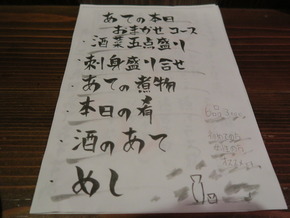 あての本日
おまかせコース
・酒菜五点盛り
・刺身盛り合せ
・あての煮物
・本日の肴
・酒のあて
・めし